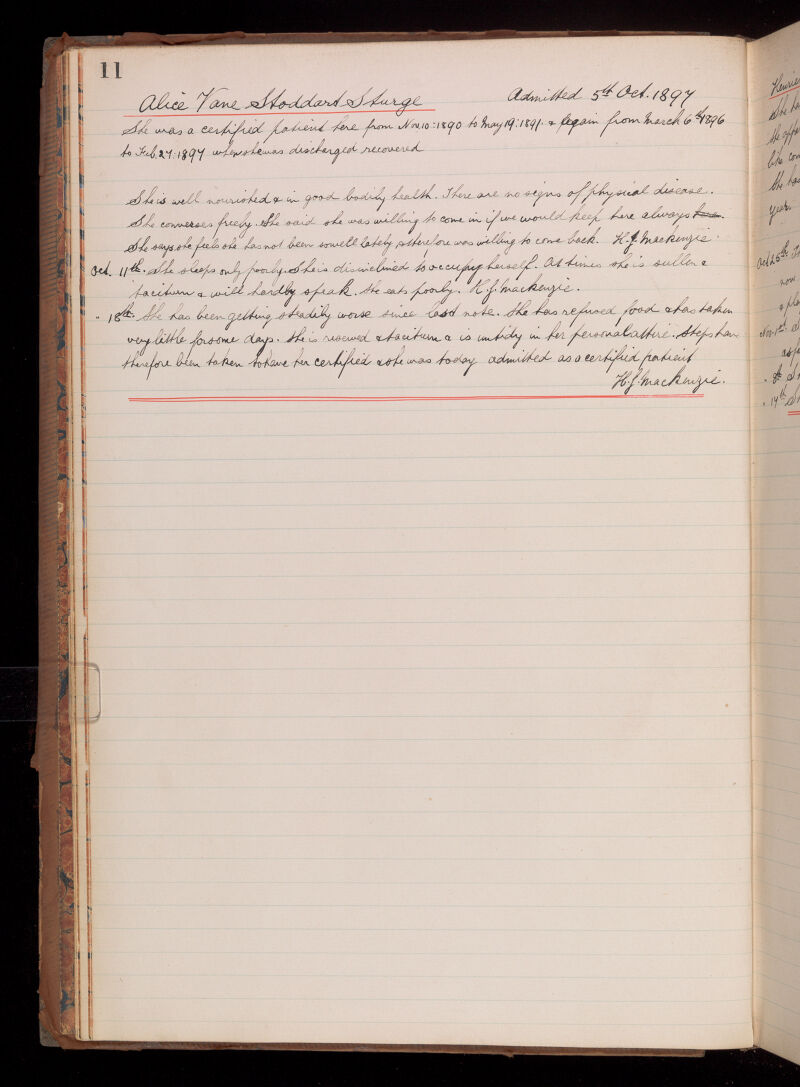 11
Alice Vane Stoddard Sturge Admitted 5th Oct. 1897
She was a certified patient here from Nov 10: 1890 to May 19: 1891. & again from March 6th 1896
to Feb. 27: 1897 when she was discharged recovered
She is well nourished & in good bodily health. There are no signs of physical disease.
She converses freely. She said she was willing to come in if we would keep here always
She says she feels she has not been so well lately & therefore was willing to come back. H.J. Mackenzie.
Oct. 11th. She sleeps only poorly. She is disinclined to occupy herself. At times she is sullen &
taciturn & will hardly speak. She eats poorly. H.J. Mackenzie.
" 18th. She has been getting steadily worse since last note. She has refused food & has taken
very little for some days. She is reserved & taciturn & is untidy in her personal attire. Steps have
therefore been taken to have her certified & she was today admitted as a certified patient
H.J. Mackenzie.
Oct 25th
now
Nov. 1st
" 14th